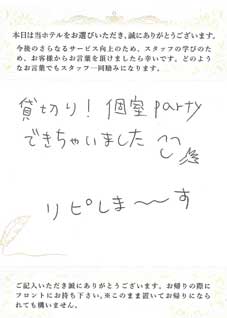 本日は当ホテルをお選びいただき、誠にありがとうございます。
今後のさらなるサービス向上のため、スタッフの学びのため、お客様からお言葉を頂けましたら幸いです。どのようなお言葉でもスタッフ一同励みになります。
貸切り! 個室party
できちゃいました
リピしま〜〜す
ご記入いただき誠にありがとうございます。お帰りの際に
フロントにお持ち下さい。※このまま置いてお帰りになら
れても構いません。